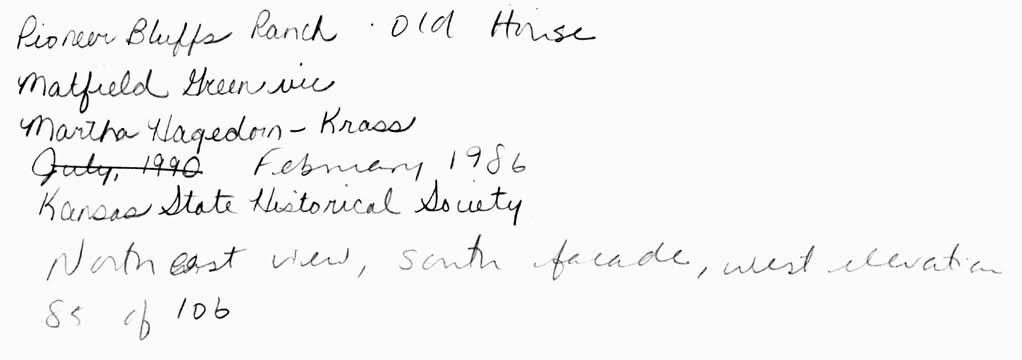 Pioneer Bluffs Ranch · Old House
Matfield Green vic
Martha Hagedorn-Krass
July, 1990 February 1986
Kansas State Historical Society
Northeast view, south facade, west elevation
85 of 106